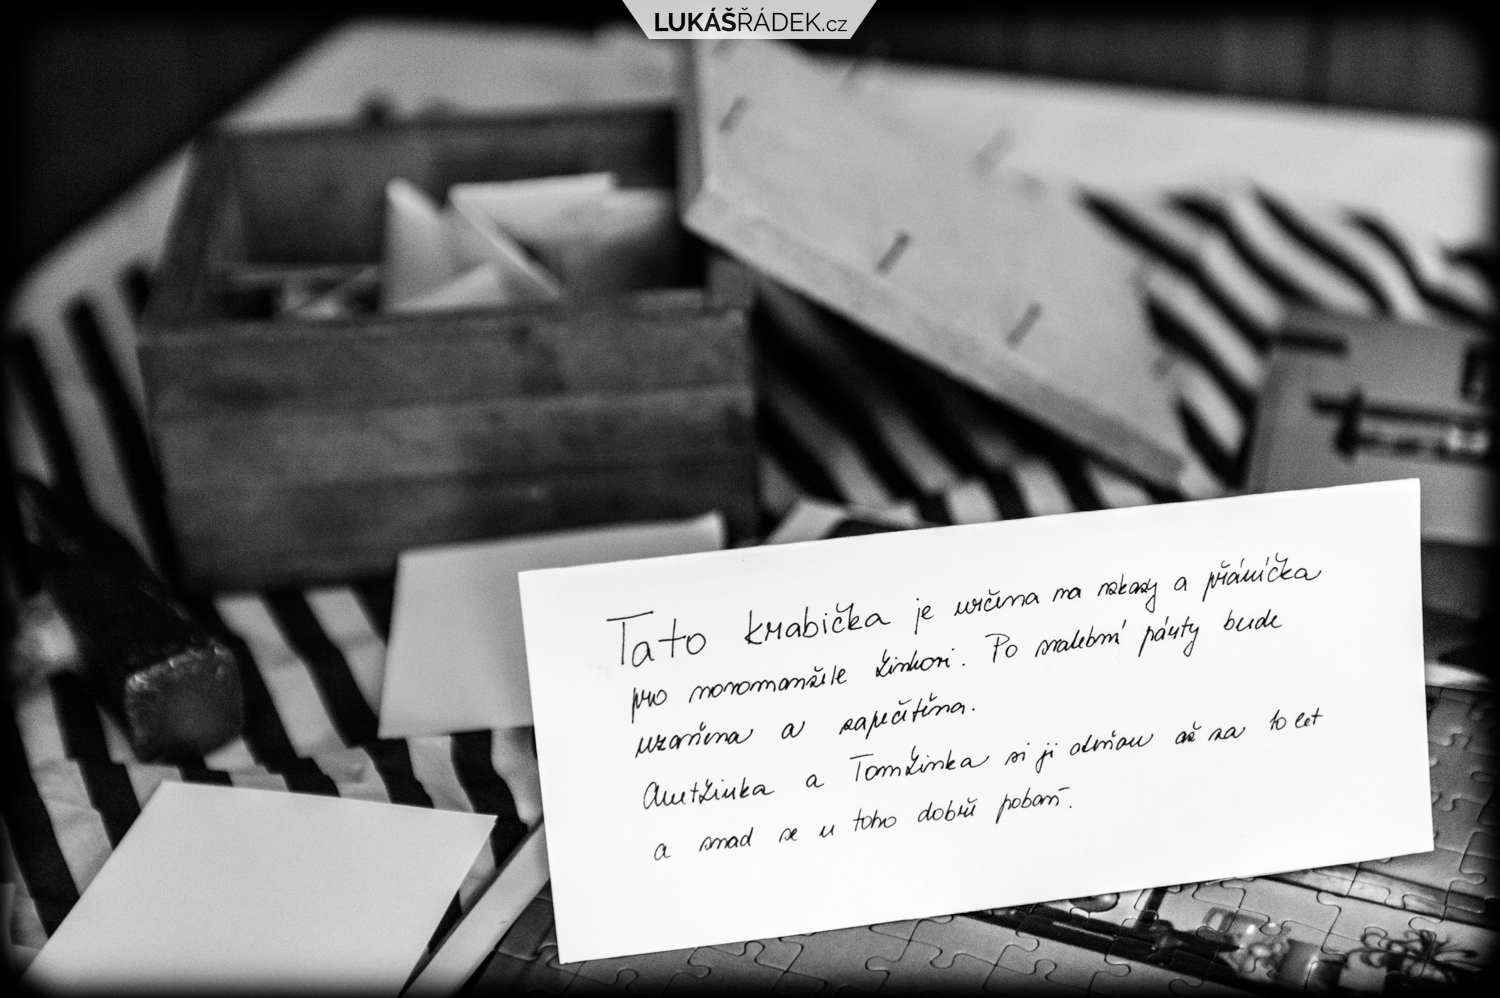 LUKÁŠŘÁDEK.cz
Tato krabička je určena na vzkazy a přáníčka
pro novomanžele Žinkovi. Po svatební párty bude
uzavřena a zapečetěna.
a TomŽinka si ji otevřou až za 10 let
a snad se u toho dobře pobaví.